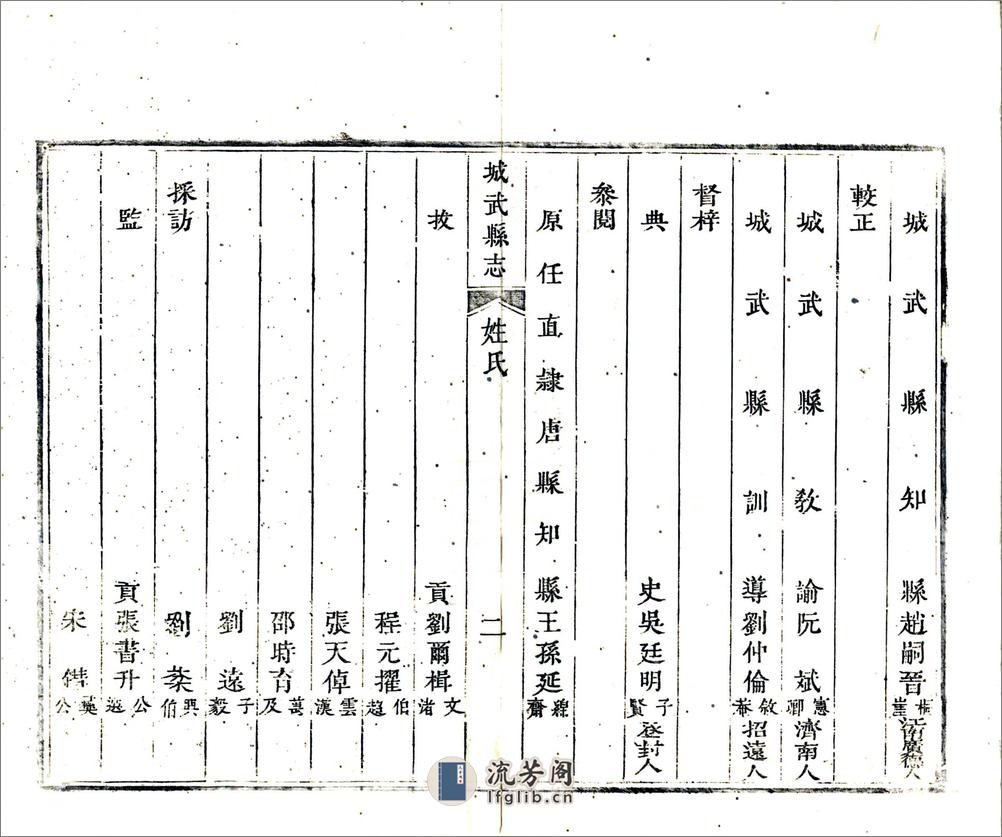 城武縣知縣趙嗣晉
較正
城武縣教諭阮斌憲卿濟南人
城武縣訓導劉仲倫敘菴招遠人
督梓
典史吳廷明子賢登封人
叅閱
原任直隷唐縣知縣王孫延
城武縣志 姓氏 二
拔貢劉爾楫文渚
程元擢伯趨
張天倬雲漢
邵時育萬及
劉遠子毅
採訪
劉 興伯
監貢張書升公選
宋
流芳阁
lfglib.cn